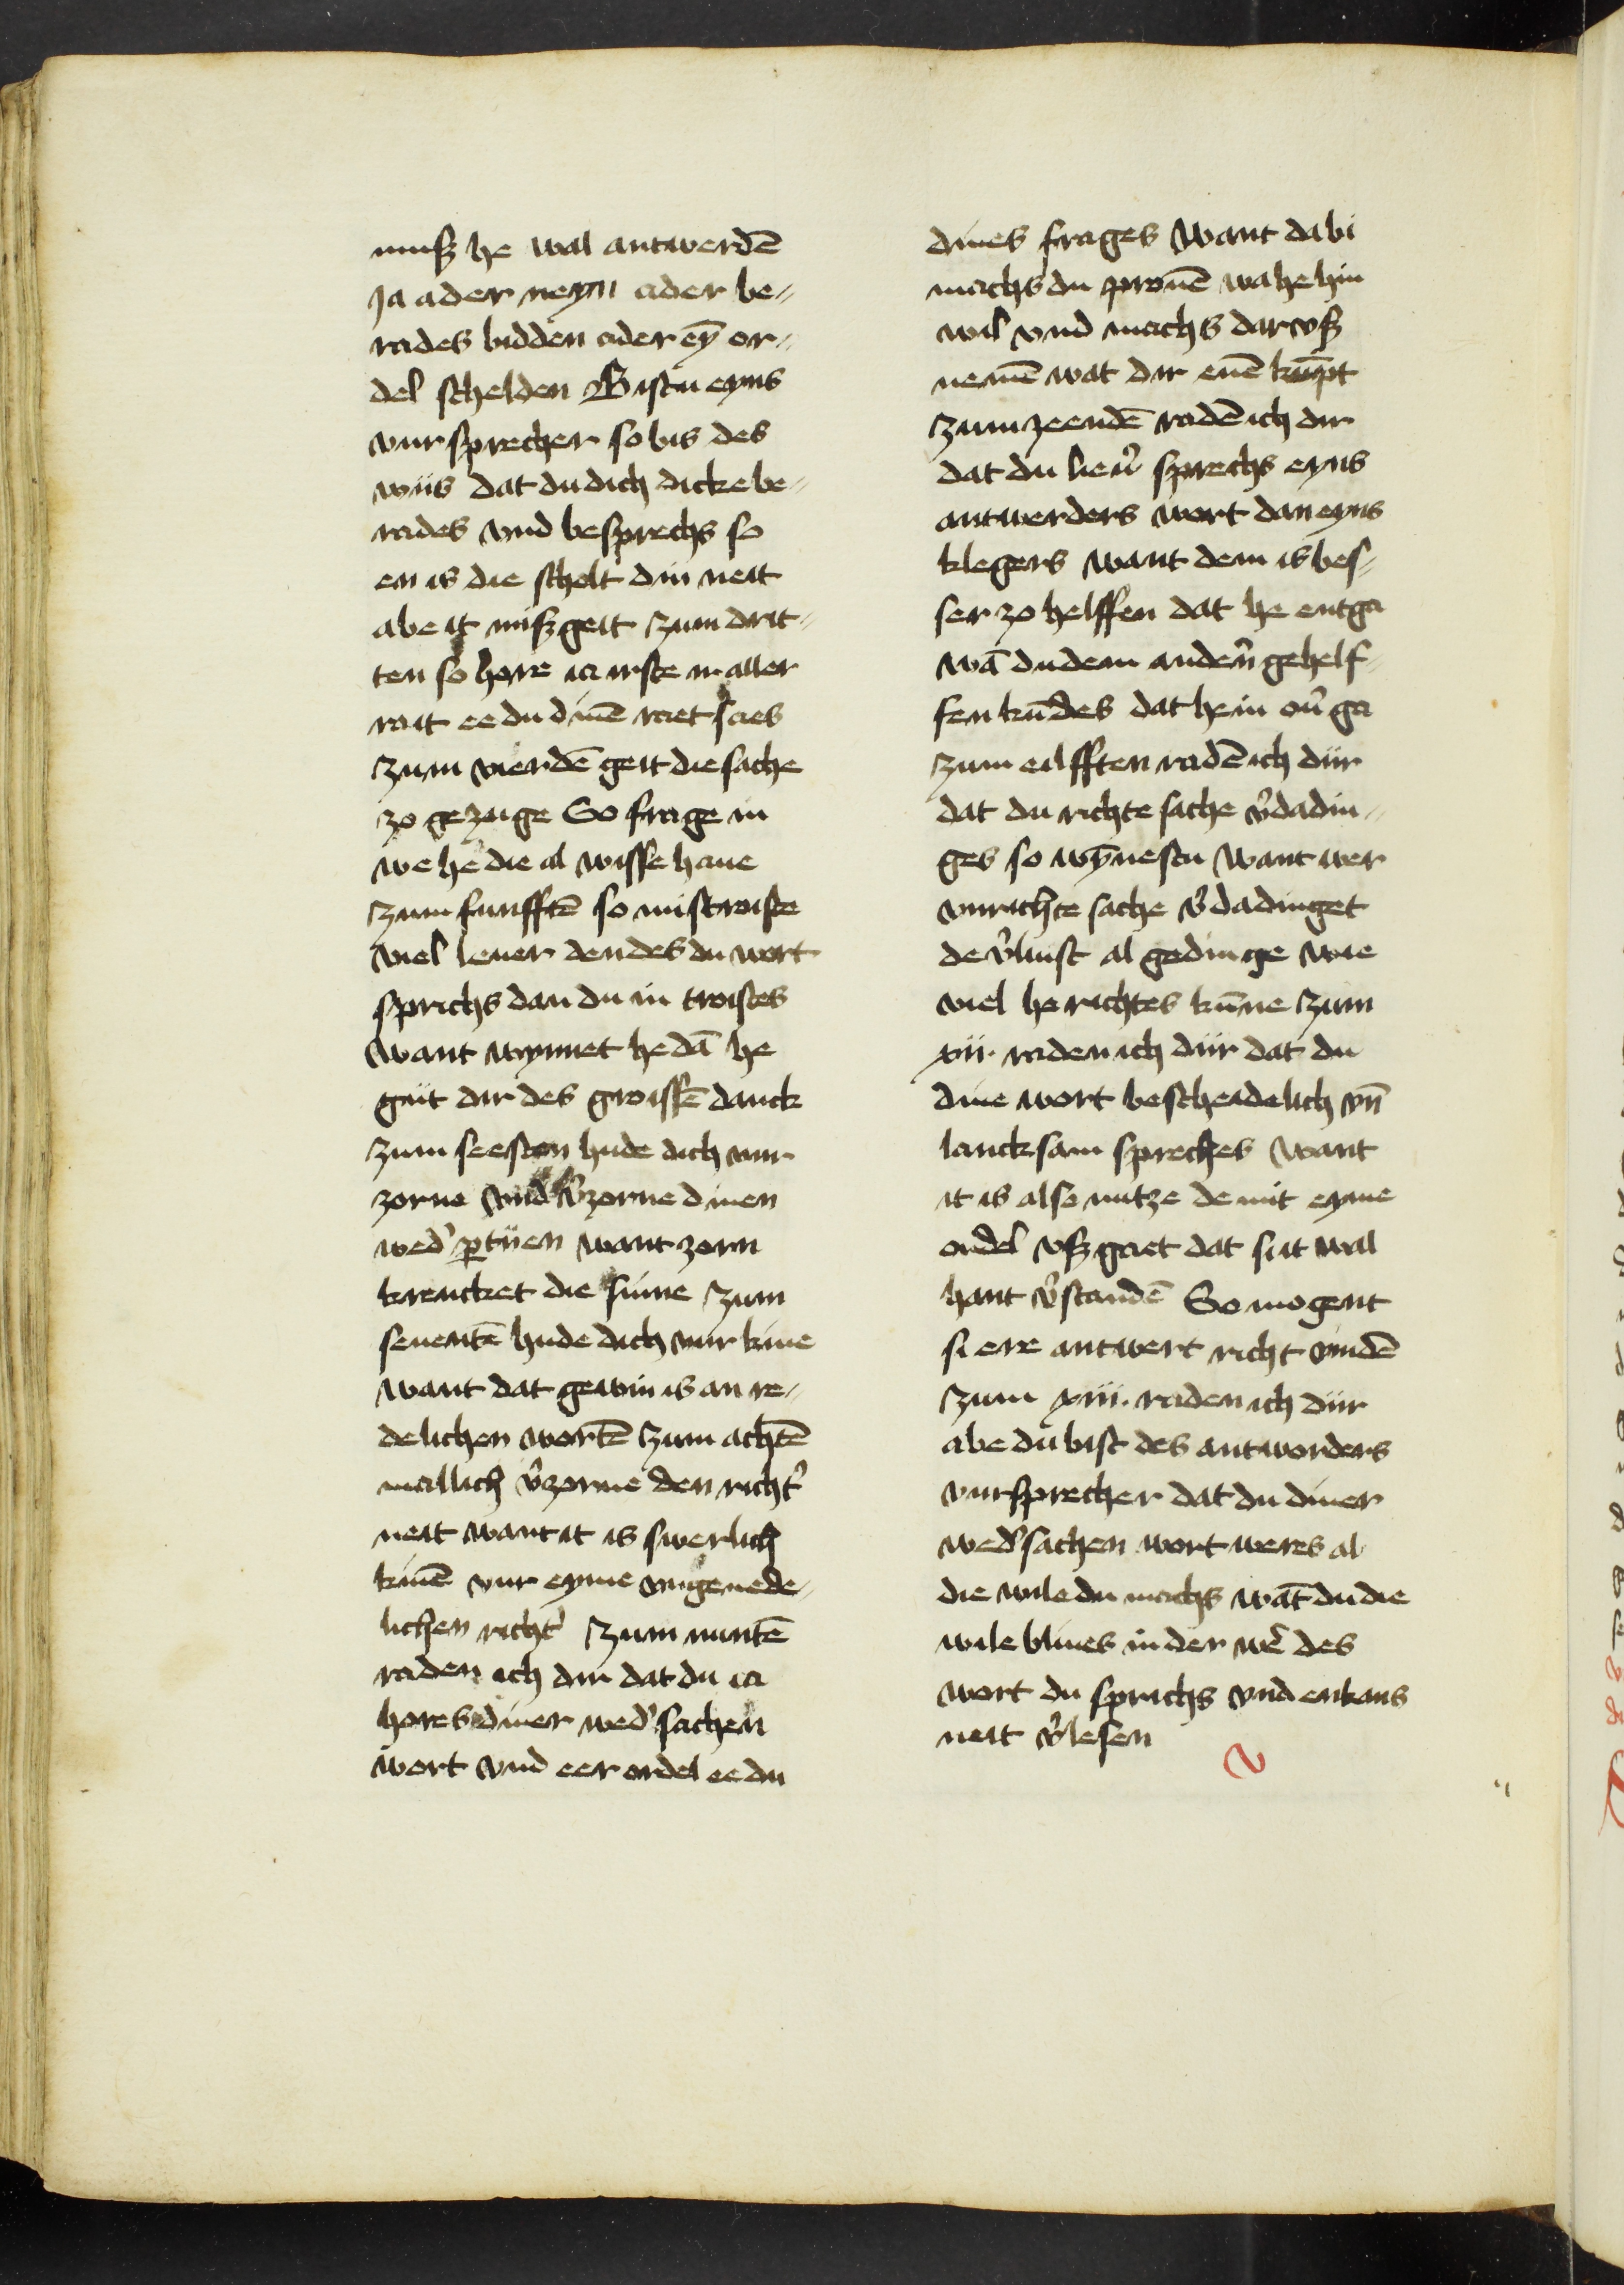 muß he wal antwerdē
Ja ader neyn ader be⸗
rades bidden ader eȳ or⸗
del schelden Bistu eyns
vursprecher so bis des
wiis dat du dich dicke be⸗
rades vnd besprechs so
en is die scholt din neit
abe it mißgeit Zum drit⸗
ten so hore ia irste ir aller
rait ee du dinē raet saes
Zum vierdē geit die sache
zo gezuge So frage in
we he die al wisse haue
Zum funfftē so mistroiste
viel leuer den des du wort
sprichs dan du in troistes
Want wynnet he dā he
guit dir des groissē danck
Zum seesten hude dich vur
zorne vnd v̉zorne dinen
wed̉ ꝑtiien want zorn
krencket die sinne Zum
seuentē hude dich vur kiue
want dat gewin is an re⸗
delichen wortē Zum achtē
mallich v̉zorne den richt̉
neit want it is swerlich
kiuē vur eyme vngenede⸗
lichen richt̉ Zum nuntē
raden ich dir dat du ia
hores diner wed̉sachen
wort vnd eer ordel ee du
dines frages Want da bi
machs du prouē wa he hin
wil vnd machs dar vß
nemē wat dir euē kūpt
Zum zeendē radē ich dir
dat du lieủ sprechs eyns
antwerders wort dan eyns
klegers want dem is bes⸗
ser zo helffen dat he entga
wā du dem anden̉ gehelf⸗
fen kūdes dat he in oủga
Zum eilfften radē ich dir
dat du richte sache v̉dadin⸗
ges so wȳnestu Want wer
vnrichte sache v̉dadinget
de v̉luist al gedinge wie
viel he richtes kūne Zum
xii. raden ich dir dat du
dine wort bescheidelich vn̄
lancksam spreches Want
it is also nutze de mit eyme
ordel vß gaet dat si it wal
hant v̉standē So mogent
si ere antwert richt vindē
Zum xiii. raden ich dir
abe du bist des antworders
vursprecher dat du diner
wed̉sachen wort weres al
die wile du machs wāt du die
wile bliues in der we̓ des
wort du sprichs vnd enkans
neit v̉lesen